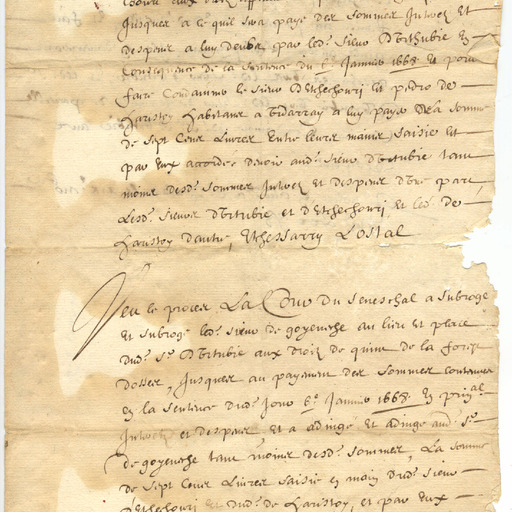 Jusques a ce quil sera paye des sommes Interetz Et
despens a luy deubz par led.^t Sieur D'Urtubie En
Consequence de la sentence du 6.^e Janvier 1668 Et pour
faire Condamner le Sieur D'Etchechoury Et pedro de
Haristoy habitans a Bidarray a luy payer De la somme
de Sept Cens Livres Entre leurs mains saisie Et
par Eux accordée devoir aud.^t Sieur D'Urtubie tant
moins desd.^s sommes Interetz Et despens D'Une part,
Lesd.^s Sieurs D'Urtubie et D'Etchechoury Et led.^t de
Haristoy d'autre, Etchessarry Lostal
Veu le proces La Cour Du Seneschal a Subrogé
Et Subroge led.^t Sieur de goyeneche au lieu Et place
dud.^t S.^r D'Urtubie aux droitz de quint de la forest
Dosses, Jusques au payement des Sommes Contenues
En la Sentence dud.^t Jour 6.^e Janvier 1668 En prin.^al
Interetz et despens Et a adjugé Et adjuge aud.^t S.^r
de goyeneche tant moins desd.^s sommes, La somme
de Sept Cens Livres Saisie en mains dud.^t Sieur
D'Etchechoury Et dud.^t de Haristoy, et par Eux